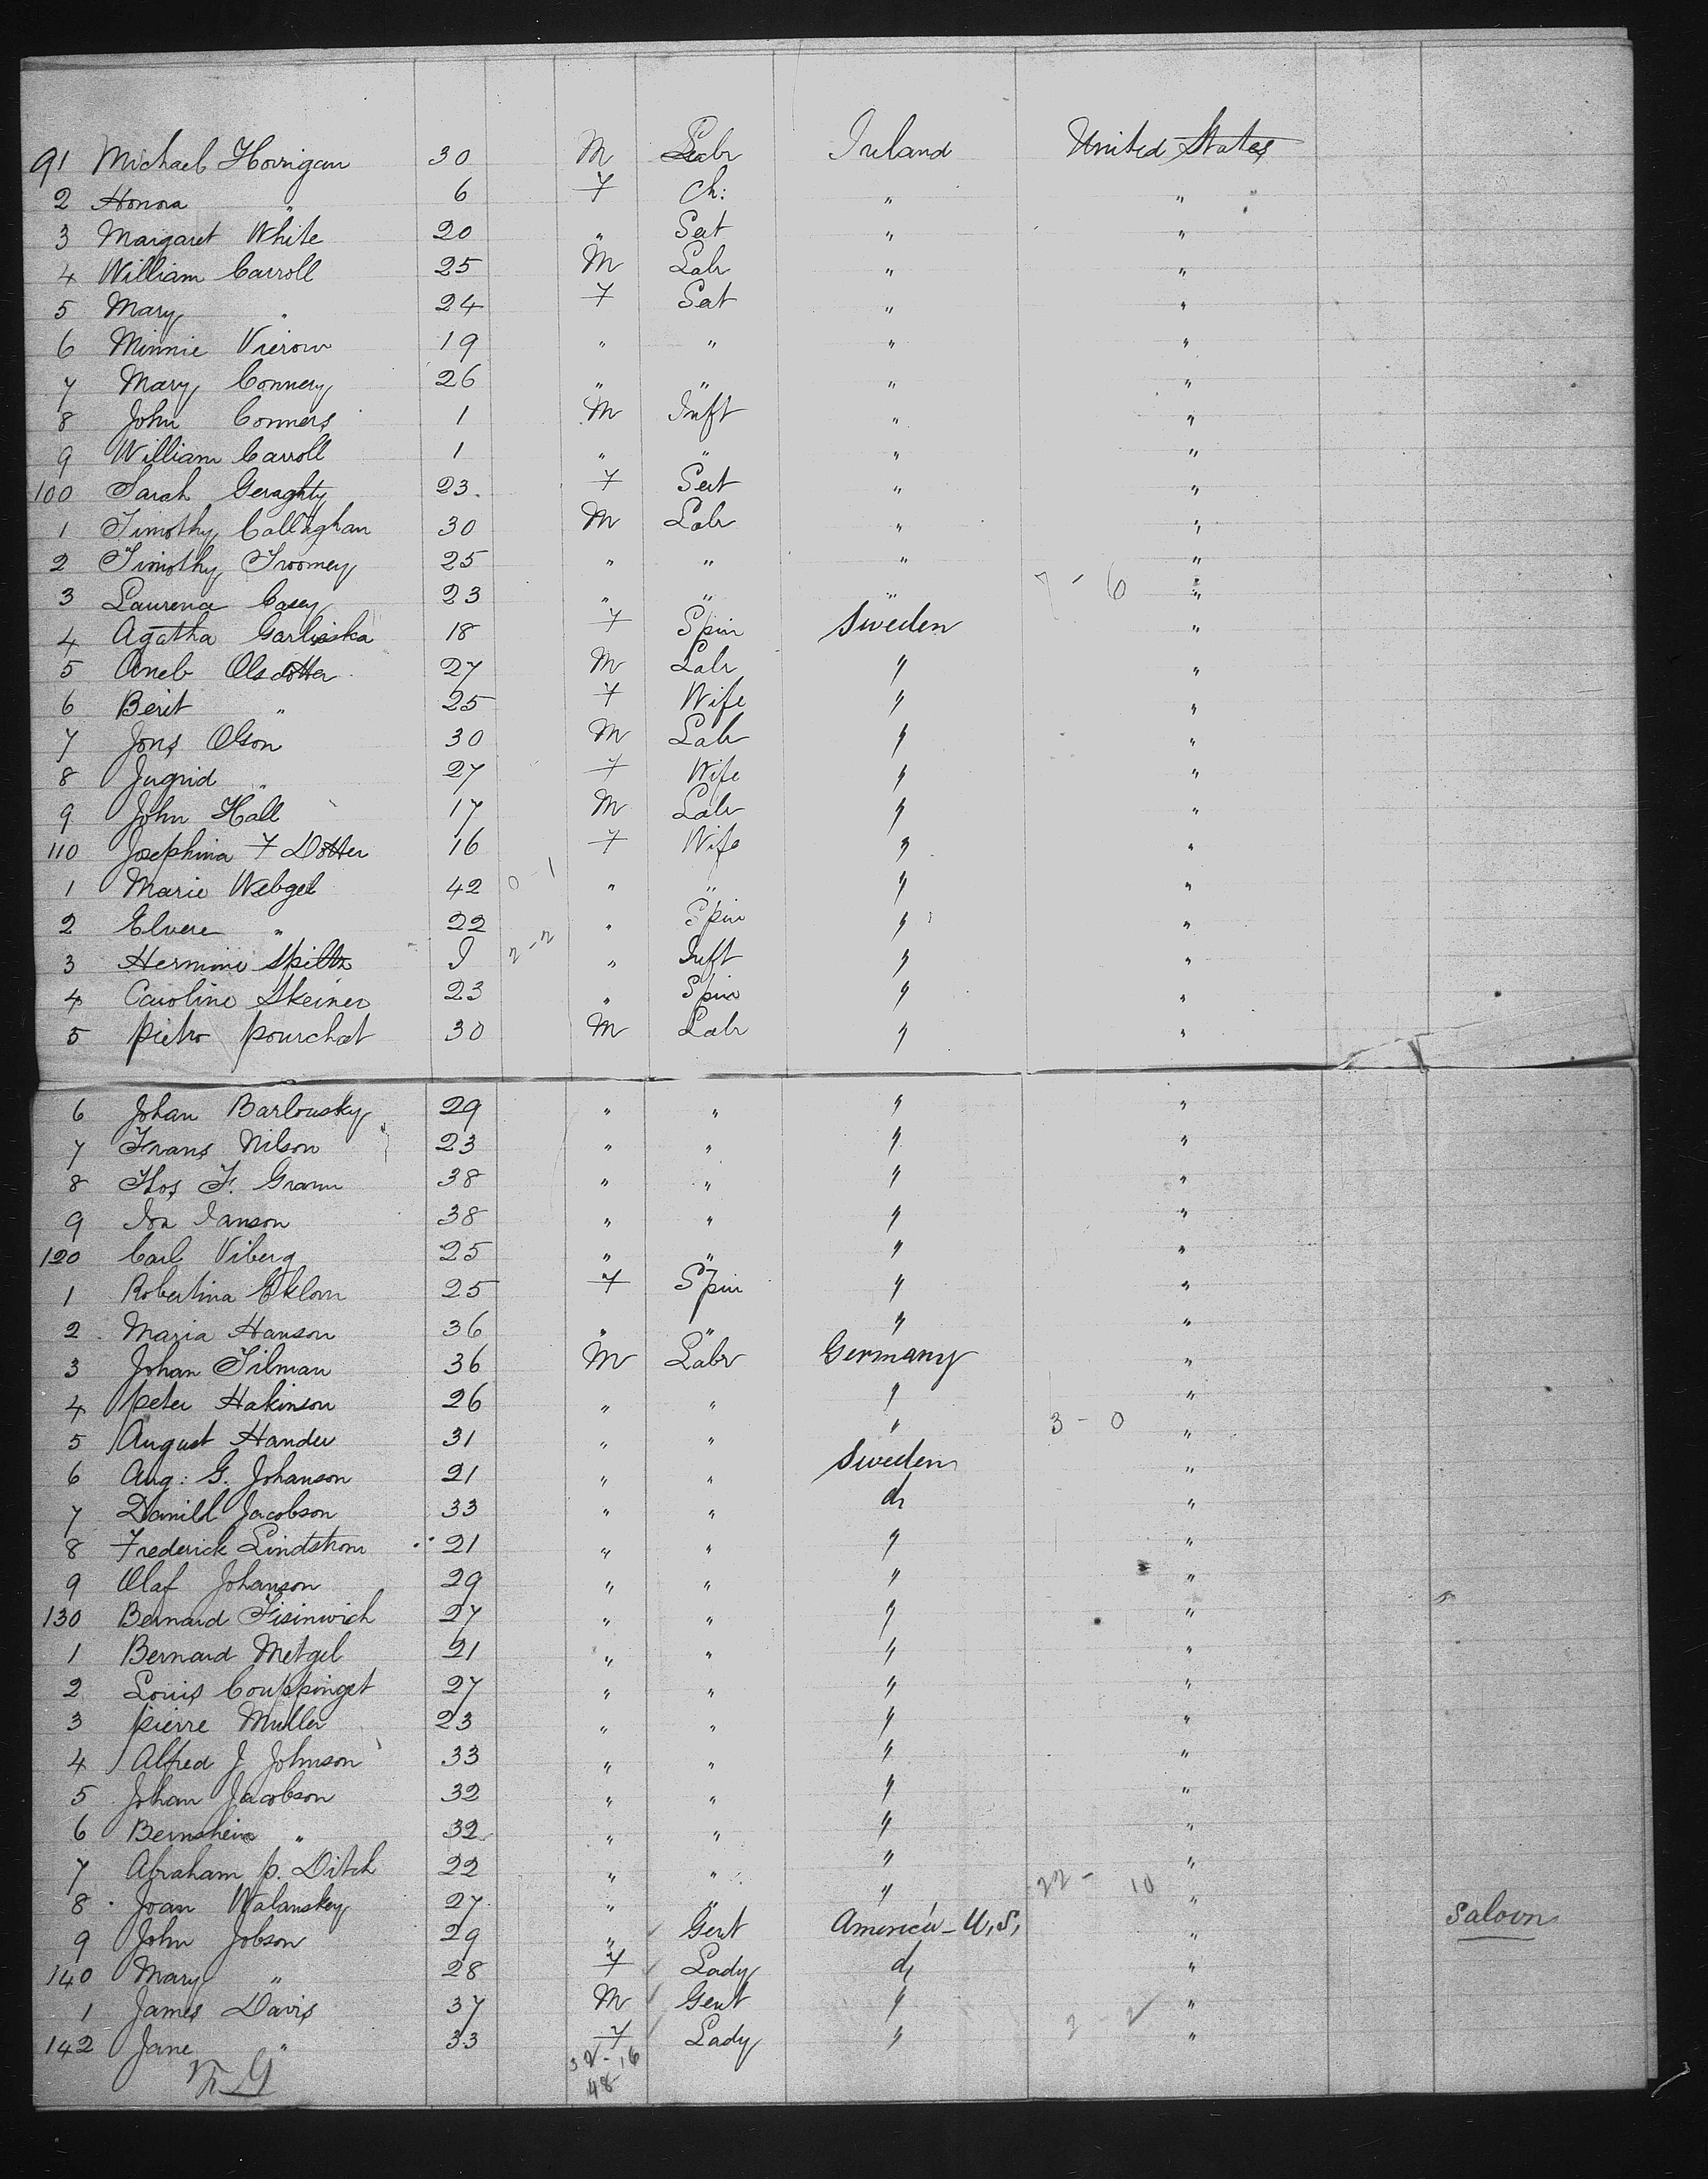 91 Michael Horrigan 30 M Labr Ireland United States
2 Honora " 6 F Ch: " "
3 Margaret White 20 " Sert " "
4 William Carroll 25 M Labr " "
5 Mary " 24 F Sert " "
6 Minnie Vierow 19 " " " "
7 Mary Connery 26 " " " "
8 John Conners 1 M Inft " "
9 William Carroll 1 " " " "
100 Sarah Geraghty 23 F Sert " "
1 Timothy Callaghan 30 M Labr " "
2 Timothy Twomey 25 " " " "
3 Laurence Casey 23 " " " 7 - 6 "
4 Agatha Garliska 18 F Spin Sweden "
5 Aneb Olsdotter 27 M Labr " "
6 Berit " 25 F Wife " "
7 Jons Olson 30 M Labr " "
8 Jngrid " 27 F Wife " "
9 John Hall 17 M Labr " "
110 Josephina F Dotter 16 F Wife " "
1 Marie Webgel 42 0 - 1 " " " "
2 Elvere " 22 " Spin " "
3 Hermine 2 - 2 " Inft " "
4 Caroline Skeiner 23 " Spin " "
5 Pietro Pourchat 30 M Labr " "
6 Johan Barlousky 29 " " " "
7 Frans Nilson 23 " " " "
8 Thos F. Gramm 38 " " " "
9 Janson 38 " " " "
120 Carl Viberg 25 " " " "
1 Robertina Eklom 25 F Spin " "
2 Maria Hanson 36 " " " "
3 Johan Tilman 36 M Labr Germany "
4 Peter Hakinson 26 " " " "
5 August Hander 31 " " " 3 - 0 "
6 Aug: G. Johanson 21 " " Sweden "
7 Danill Jacobson 33 " " do "
8 Frederick Lindstrom 21 " " " "
9 Olaf Johanson 29 " " " "
130 Bernard Fisinwich 27 " " " "
1 Bernard Metgel 21 " " " "
2 Louis Couppinget 27 " " " "
3 Pierre Muller 23 " " " "
4 Alfred J Johnson 33 " " " "
5 Johan Jacobson 32 " " " "
6 Bernshein " 32 " " " "
7 Abraham P. Ditch 22 " " " "
8 Joan Walanskey 27 " " " 22 - 10 "
9 John Jobson 29 " Gent America - U.S. " Saloon
140 Mary " 28 F Lady do "
1 James Davis 37 M Gent " "
142 Jane " 33 F Lady " 2 - 2 "
32 - 16
48